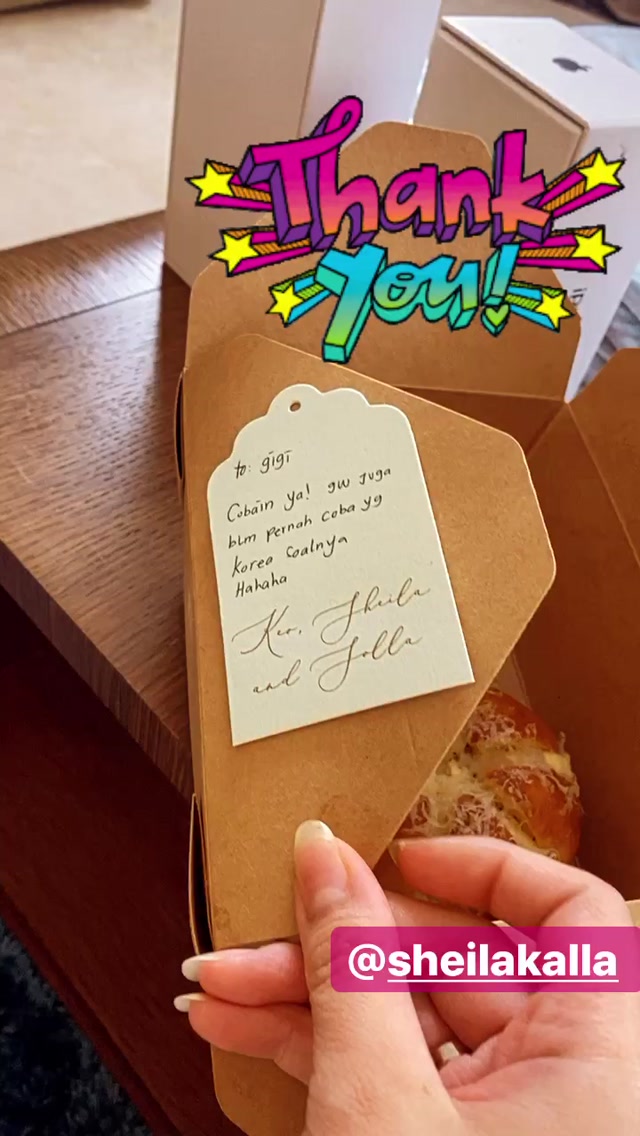 Thank
You!
to: gigi
Cobain ya! gw juga
blm pernah coba yg
korea soalnya
Hahaha
Sheila
and
@sheilakalla